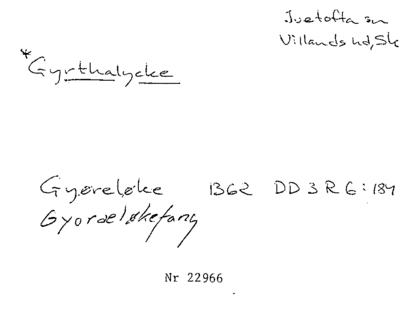 Ivetofta sn
Villands hd, Sk
*Gyrthalycke
Gyøreløke 1362 DD 3 R 6:184
Gyordeløkefang
Nr 22966